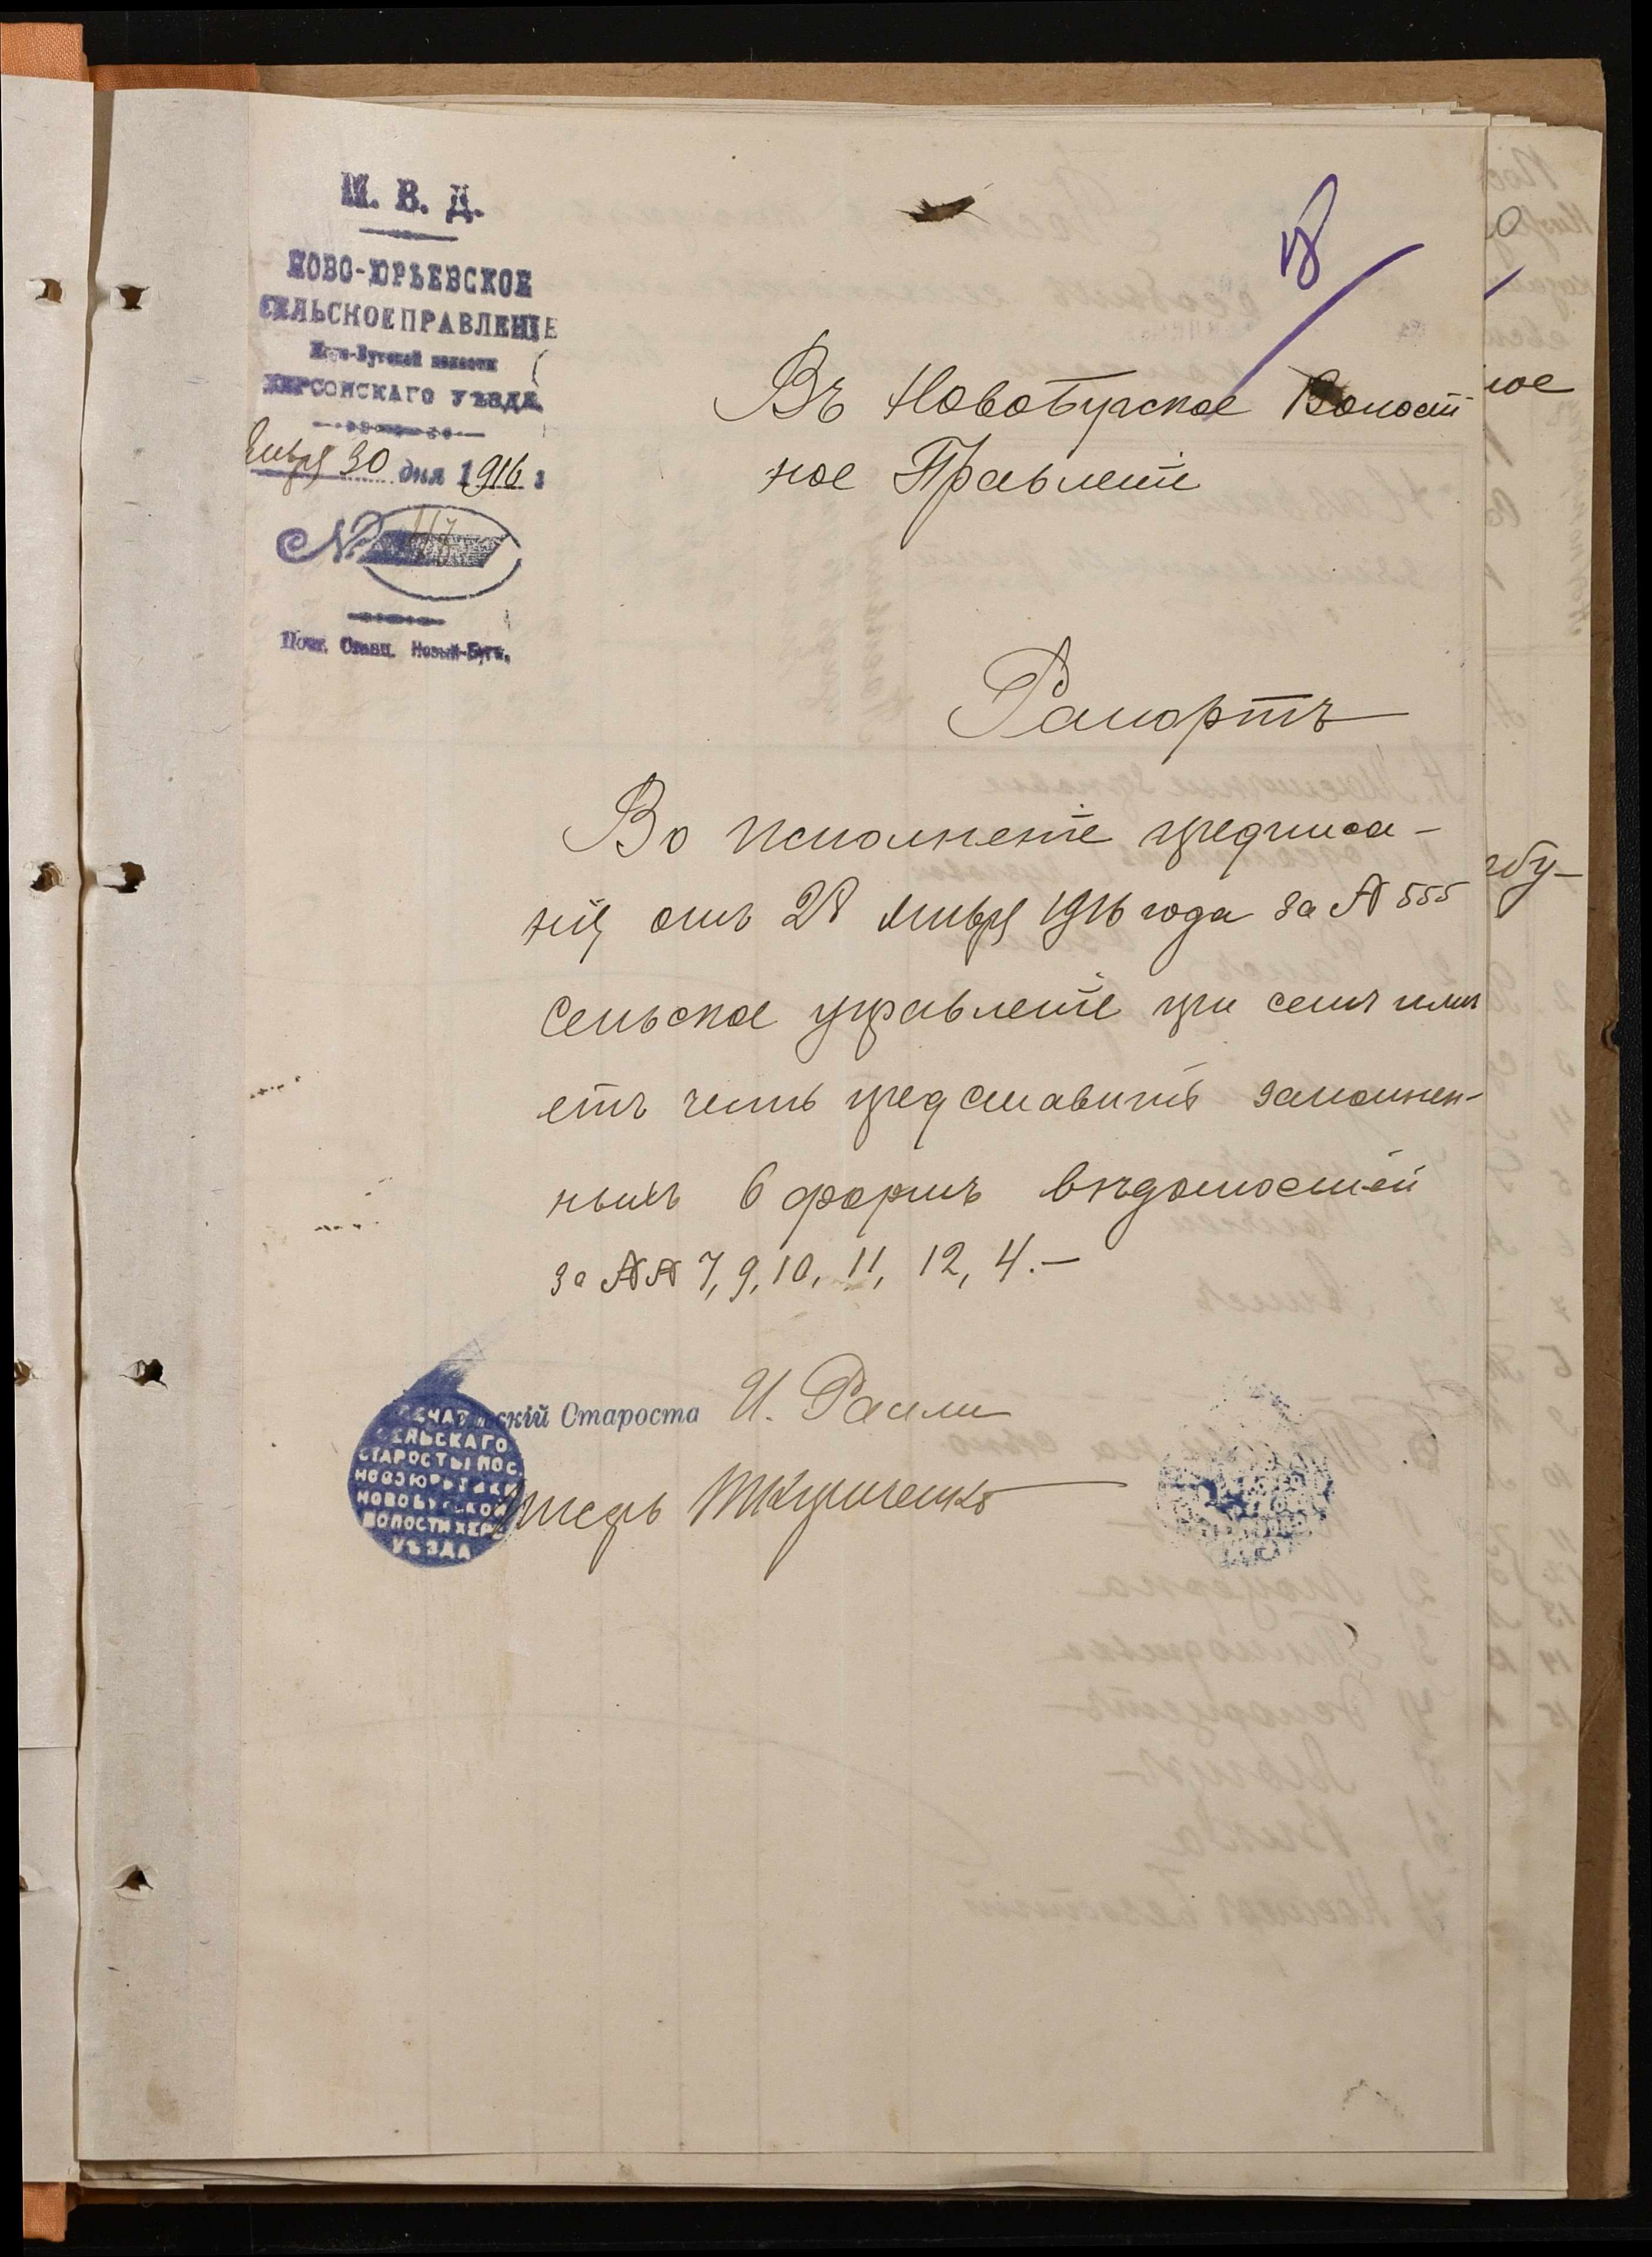 М. В. Д.
НОВО-ЮРЬЕВСКОЕ
СЕЛЬСКОЕ ПРАВЛЕНІЕ
Ново-Бугской волости
ХЕРСОНСКАГО УѢЗДА
Января 30 дня 1916 г
№ 117
Почт. Станц. Новый-Бугъ.
Въ Новобугское Волост
ное Правленіе
Рапортъ
Во исполненіе предписа-
нія отъ 28 января 1916 года за № 555
сельское управленіе при семъ имѣ
етъ честь представить заполнен-
ныхъ 6 формъ вѣдомостей
за №№ 7, 9, 10, 11, 12, 4.-
Сельскій Староста И.
ПЕЧАТЬ
СЕЛЬСКАГО
СТАРОСТЫ ПОС.
НОВОЮРЬЕВКИ
НОВОБУГСКОЙ
ВОЛОСТИ ХЕРС
УѢЗДА
Писарь
ное